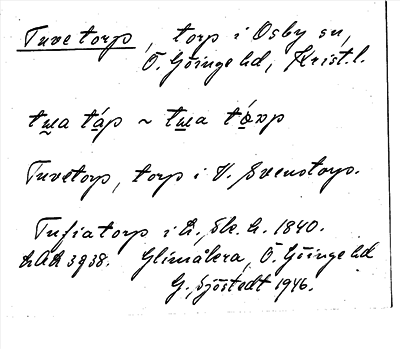 Tuvetorp, torp i Osby sn,
Ö. Göinge hd, Krist. l.
tɯa táp ~ tɯa
Tuvetorp, torp i V. Svenstorp.
Tufiatorp i h. 1840.
LAL 3938. Glimåkra, Ö. Göinge hd
G. Sjöstedt 1946.